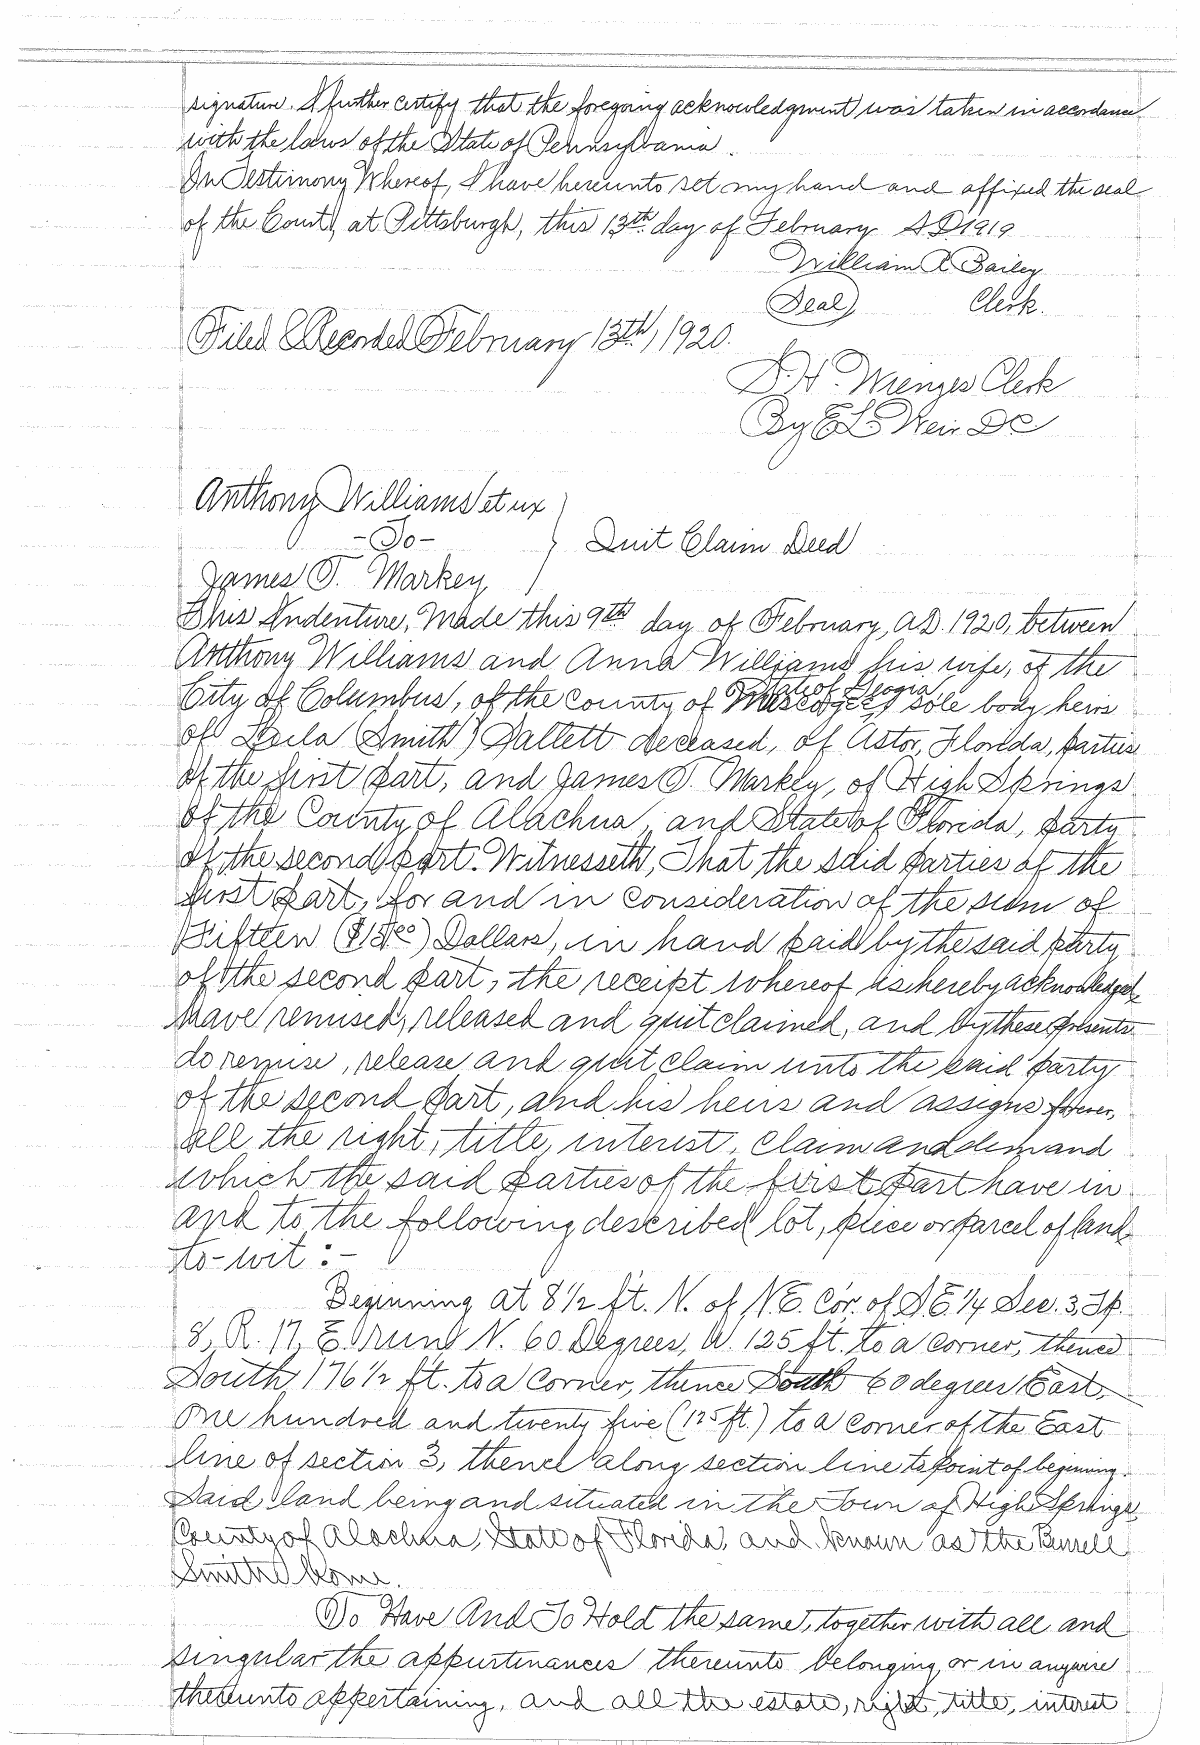 signature. I further certify that the foregoing acknowledgment was taken in accordance
with the laws of the State of Pennsylvania.
In Testimony Whereof, I have hereunto set my hand and affixed the seal
of the Court, at Pittsburgh, this 13th day of February A.D. 1919
William R Bailey
(Seal) Clerk.
Filed & Recorded February 13th, 1920.
S. H. Wienges Clerk
By E L Weir DC
Anthony Williams et ux
-To- Quit Claim Deed
James T. Markey
This Indenture, Made this 9th day of February, A.D. 1920, between
Anthony Williams and Anna Williams his wife, of the
State of Georgia
City of Columbus, of the County of Muscogee, sole body heirs
of Leila (Smith) Sallett deceased, of Astor, Florida, parties
of the first part, and James T. Markey, of High Springs
of the County of Alachua, and State of Florida, party
of the second part. Witnesseth, That the said parties of the
first part, for and in consideration of the sum of
Fifteen ($15.00) Dollars, in hand paid by the said party
of the second part, the receipt whereof is hereby acknowledged,
have remised, released and quitclaimed, and by these presents
do remise, release and quit claim unto the said party
of the second part, and his heirs and assigns forever,
all the right, title, interest, claim and demand
which the said parties of the first part have in
and to the following described lot, piece or parcel of land
to-wit:-
Beginning at 8 1/2 ft. N. of N.E. Cor. of S.E. 1/4 Sec. 3, Tp.
8, R. 17, E. run N. 60 Degrees, W. 125 ft. to a corner, thence
South 176 1/2 ft. to a corner, thence South 60 degrees East,
one hundred and twenty five (125 ft.) to a corner of the East
line of section 3, thence along section line to point of beginning.
Said land being and situated in the Town of High Springs,
County of Alachua, State of Florida, and known as the Burrell
Smith home.
To Have And To Hold the same, together with all and
singular the appurtenances thereunto belonging, or in anywise
thereunto appertaining, and all the estate, right, title, interest